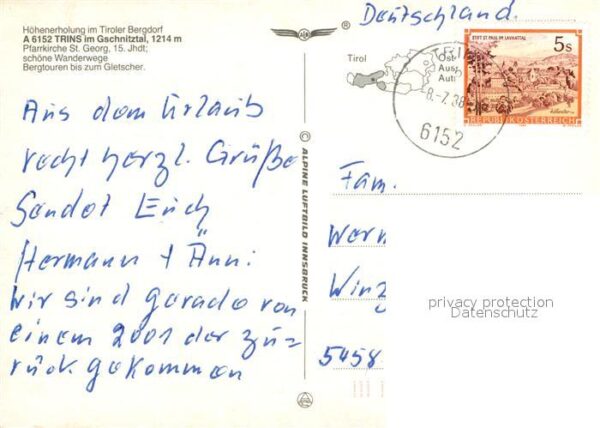 Höhenerholung im Tiroler Bergdorf
A 6152 TRINS im Gschnitztal, 1214 m
Pfarrkirche St. Georg, 15. Jhdt;
schöne Wanderwege
Bergtouren bis zum Gletscher.
Aus dem Urlaub
recht herzl. Grüße
Sendet Euch
Hermann + Änni
Wir sind gerade von
einem 2001 der zu=
rück gekommen
ALPINE LUFTBILD INNSBRUCK
®
Deutschland.
Tirol
6152
STIFT ST. PAUL IM LAVANTTAL
5s
REPUBLIK ÖSTERREICH
Fam.
Wern
Winz
5458
privacy protection
Datenschutz